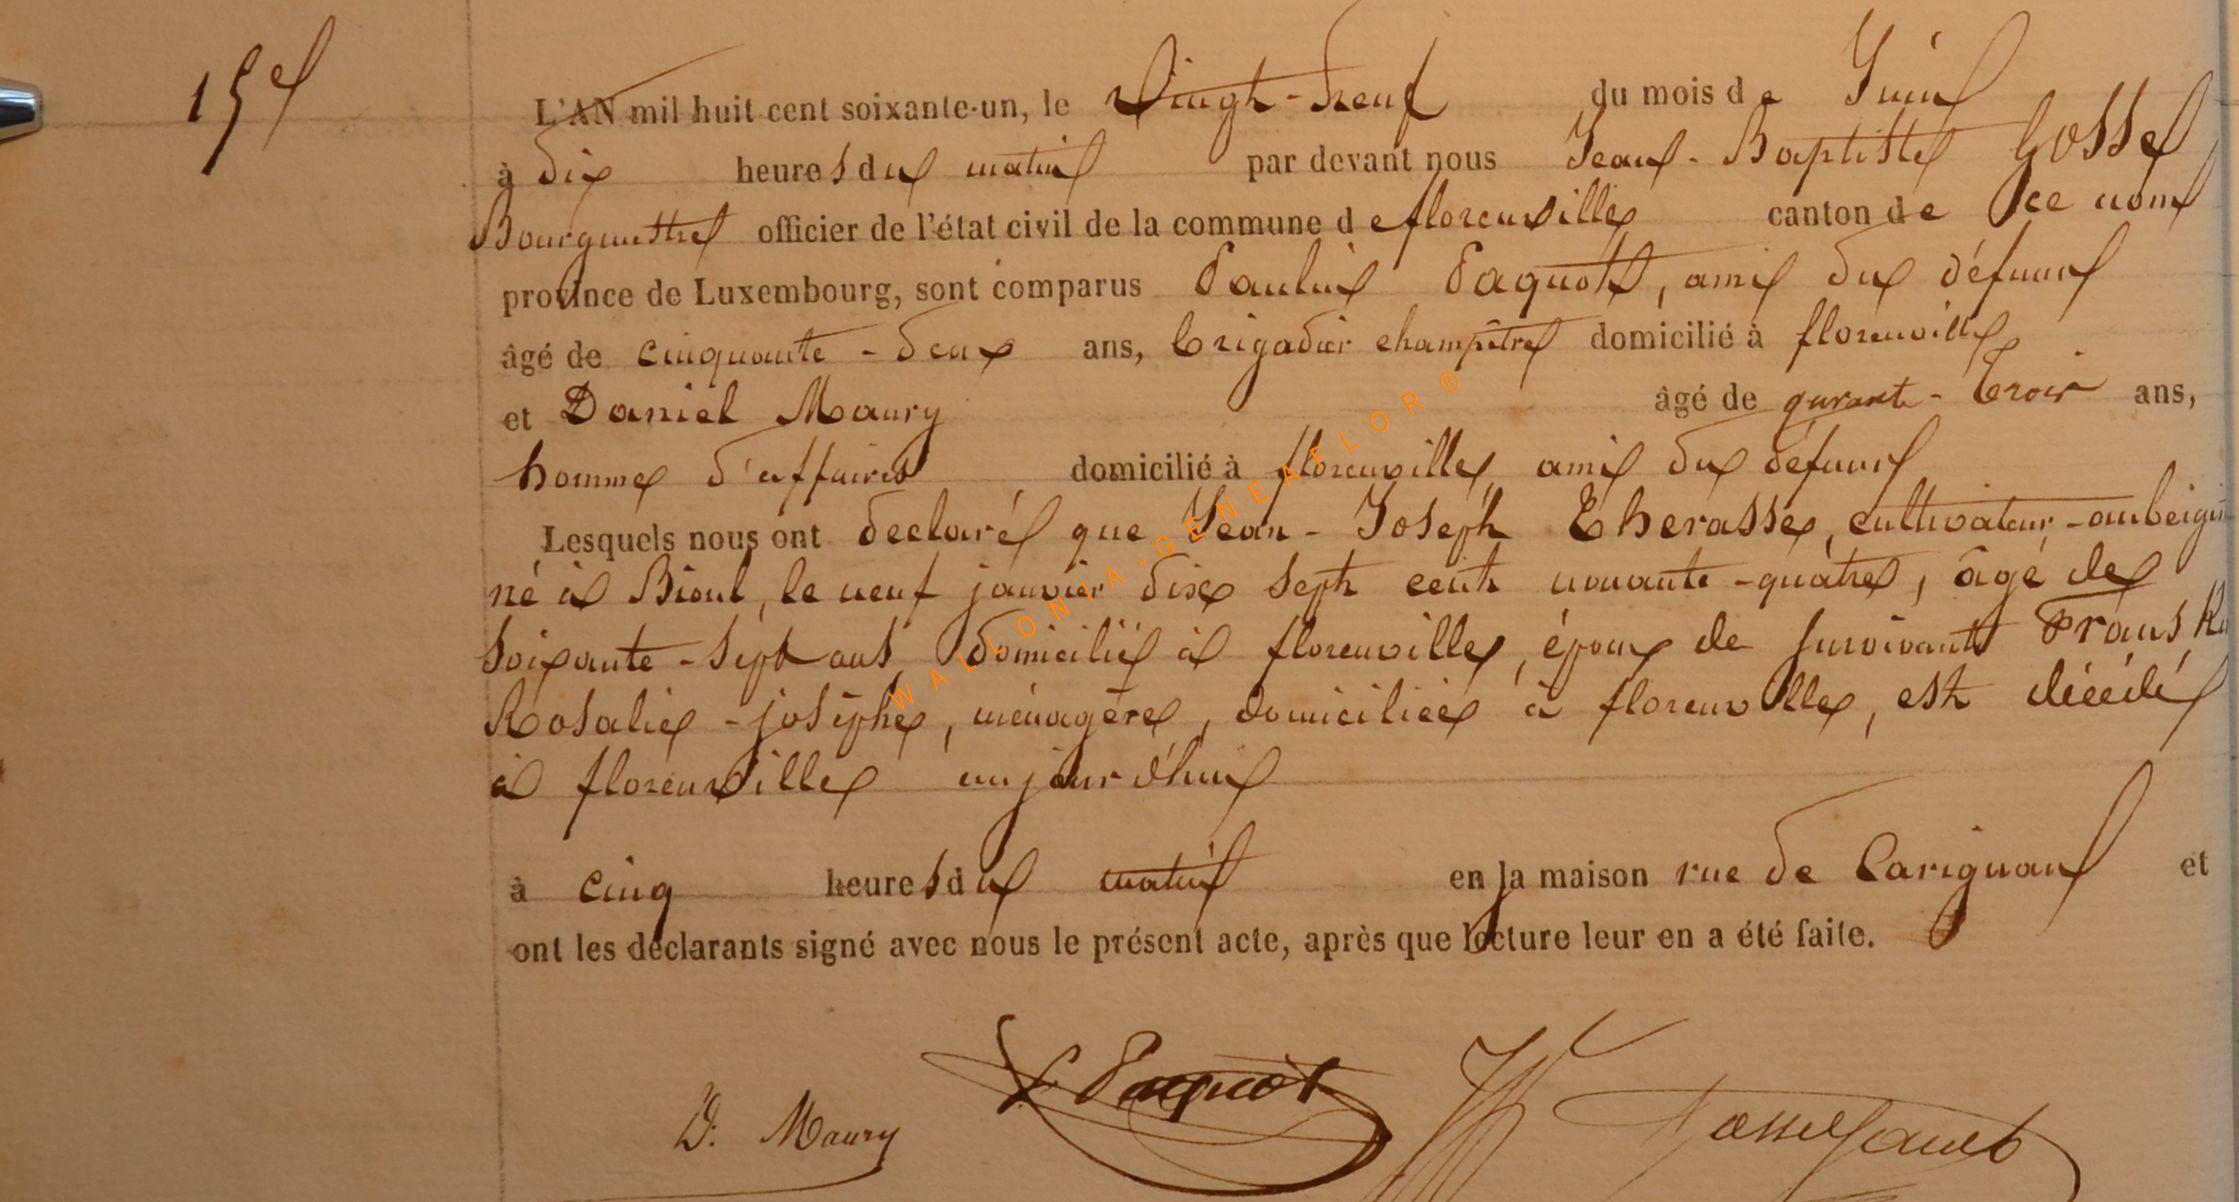 15e
L'AN mil huit cent soixante-un, le Vingt-neuf du mois de Juin
à dix heures du matin par devant nous Jean-Baptiste Gosse,
Bourgmestre officier de l'état civil de la commune de florenville canton de ce nom
province de Luxembourg, sont comparus Paulin Paquot, ami du défunt
âgé de cinquante-deux ans, brigadier champêtre domicilié à florenville
et Daniel Maury âgé de qurante-trois ans,
homme d'affaires domicilié à florenville, ami du défunt
Lesquels nous ont declaré que Jean-Joseph Therasse, cultivateur-aubergi
né à Bioul, le neuf janvier dix sept cent nonante-quatre, âgé de
soixante-sept ans, domicilié à florenville, époux de survivante Frans,
Rosalie-josèphe, ménagère, domiciliée à florenville, est décédé
à florenville aujourd'hui
à cinq heures du matin en la maison rue de Carignan et
ont les déclarants signé avec nous le présent acte, après que lecture leur en a été faite.
D. Maury Paquot
WALLONIA-GENEAFLOR®